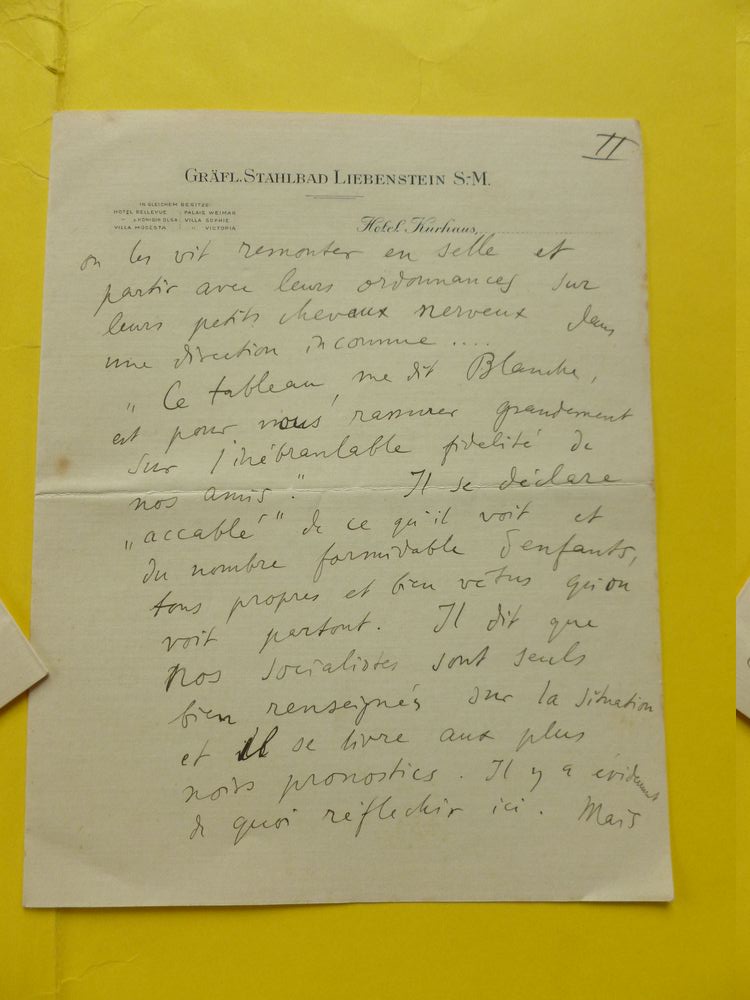 II
GRÄFL. STAHLBAD LIEBENSTEIN S.-M.
IN GLEICHEM BESITZE:
HOTEL BELLEVUE PALAIS WEIMAR
" KÖNIGIN OLGA VILLA SOPHIE
VILLA MODESTA " VICTORIA
Hotel Kurhaus,
on les vit remonter en selle et
partir avec leurs ordonnances sur
leurs petits chevaux nerveux dans
une direction inconnue ....
" Ce tableau, me dit Blanche,
est pour nous rassurer grandement
sur l'inébranlable fidélité de
nos amis." Il se déclare
"accablé" de ce qu'il voit et
du nombre formidable d'enfants,
tous propres et bien vêtus qu'on
voit partout. Il dit que
nos socialistes sont seuls
bien renseignés sur la situation
et il se livre aux plus
noirs pronostics. Il y a évidemment
de quoi réfléchir ici. Mais